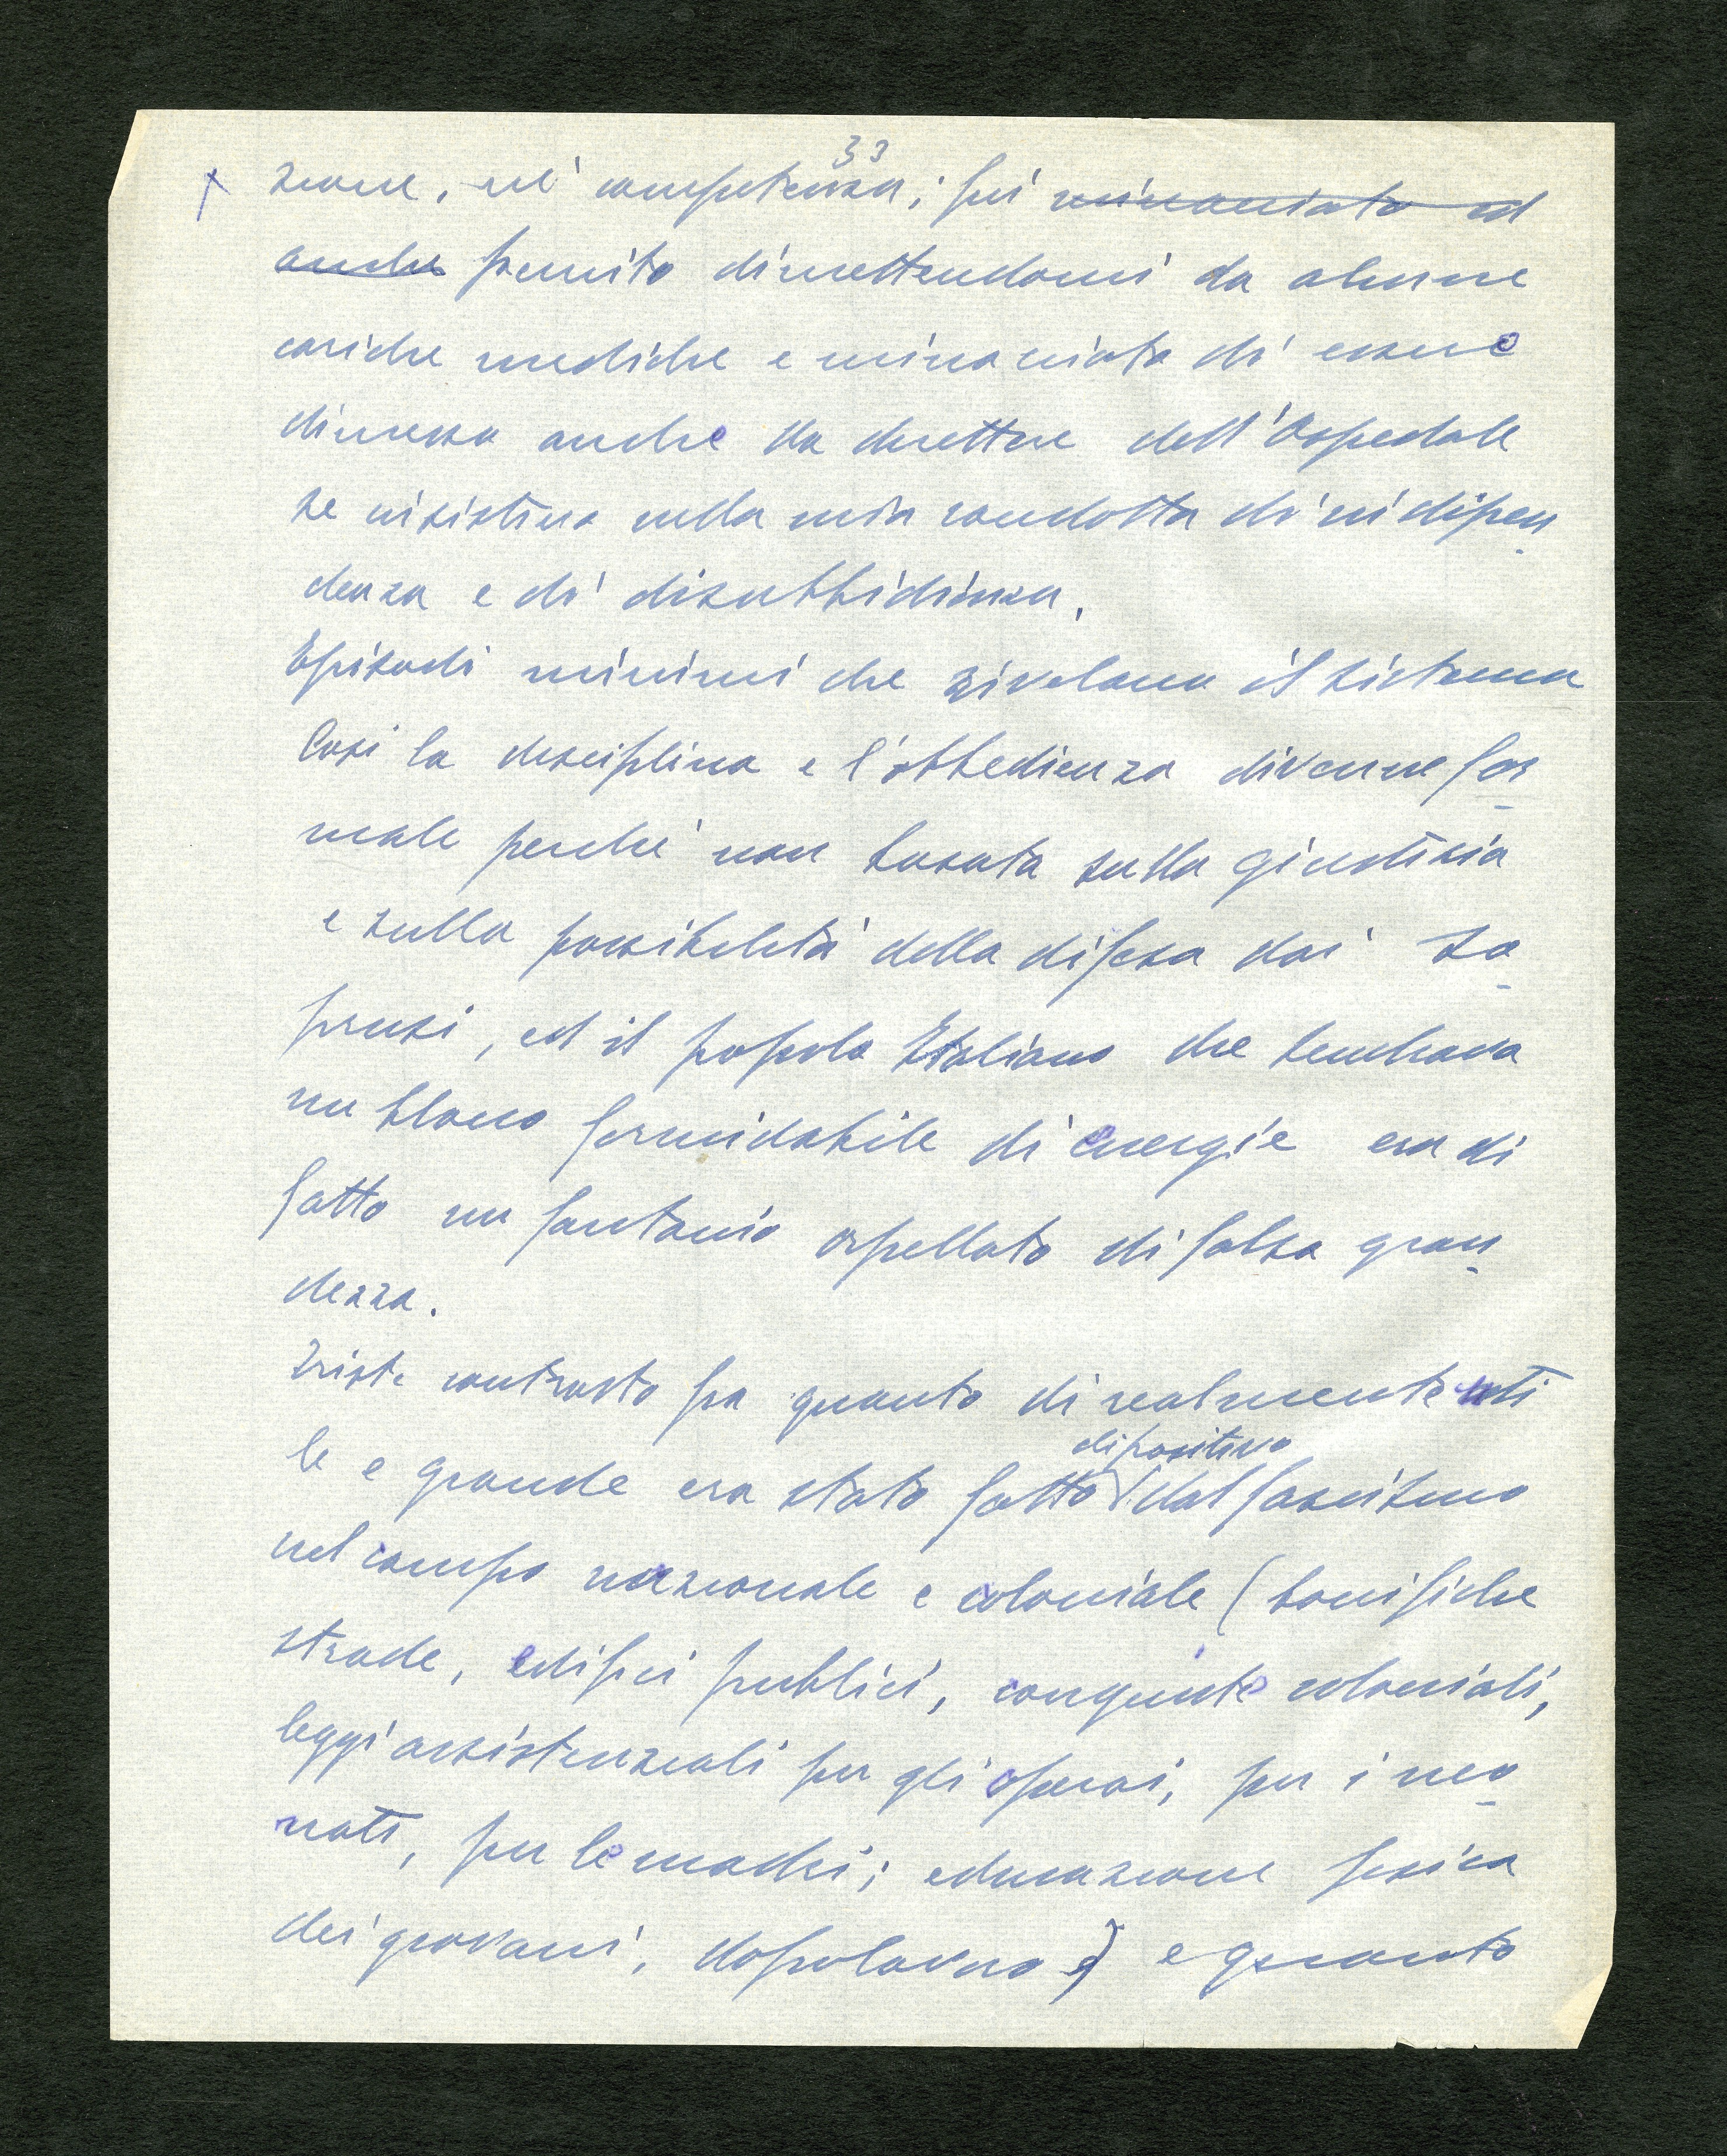 33
zione, nè competenza; fui minacciato ed
anche punito dimettendomi da alcune
cariche mediche e minacciato di essere
dimesso anche da direttore dell'Ospedale
se insistevo nella mia condotta di indipen
denza e di disubbidienza.
Episodi minimi che rivelano il sistema
Così la disciplina e l'obbedienza divenne for
male perchè non basata sulla giustizia
e sulla possibilità della difesa dai so
prusi, ed il popolo Italiano che sembrava
un blocco formidabile di energie era di
fatto un fantoccio orpellato di falsa gran
dezza.
Triste contrasto fra quanto di realmente uti
di positivo
le e grande era stato fatto dal fascismo
nel campo nazionale e coloniale (bonifiche
strade, edifici pubblici, conquiste coloniali,
leggi assistenziali per gli operai, per i neo
nati, per le madri; educazione fisica
dei giovani, dopolavoro) e quanto